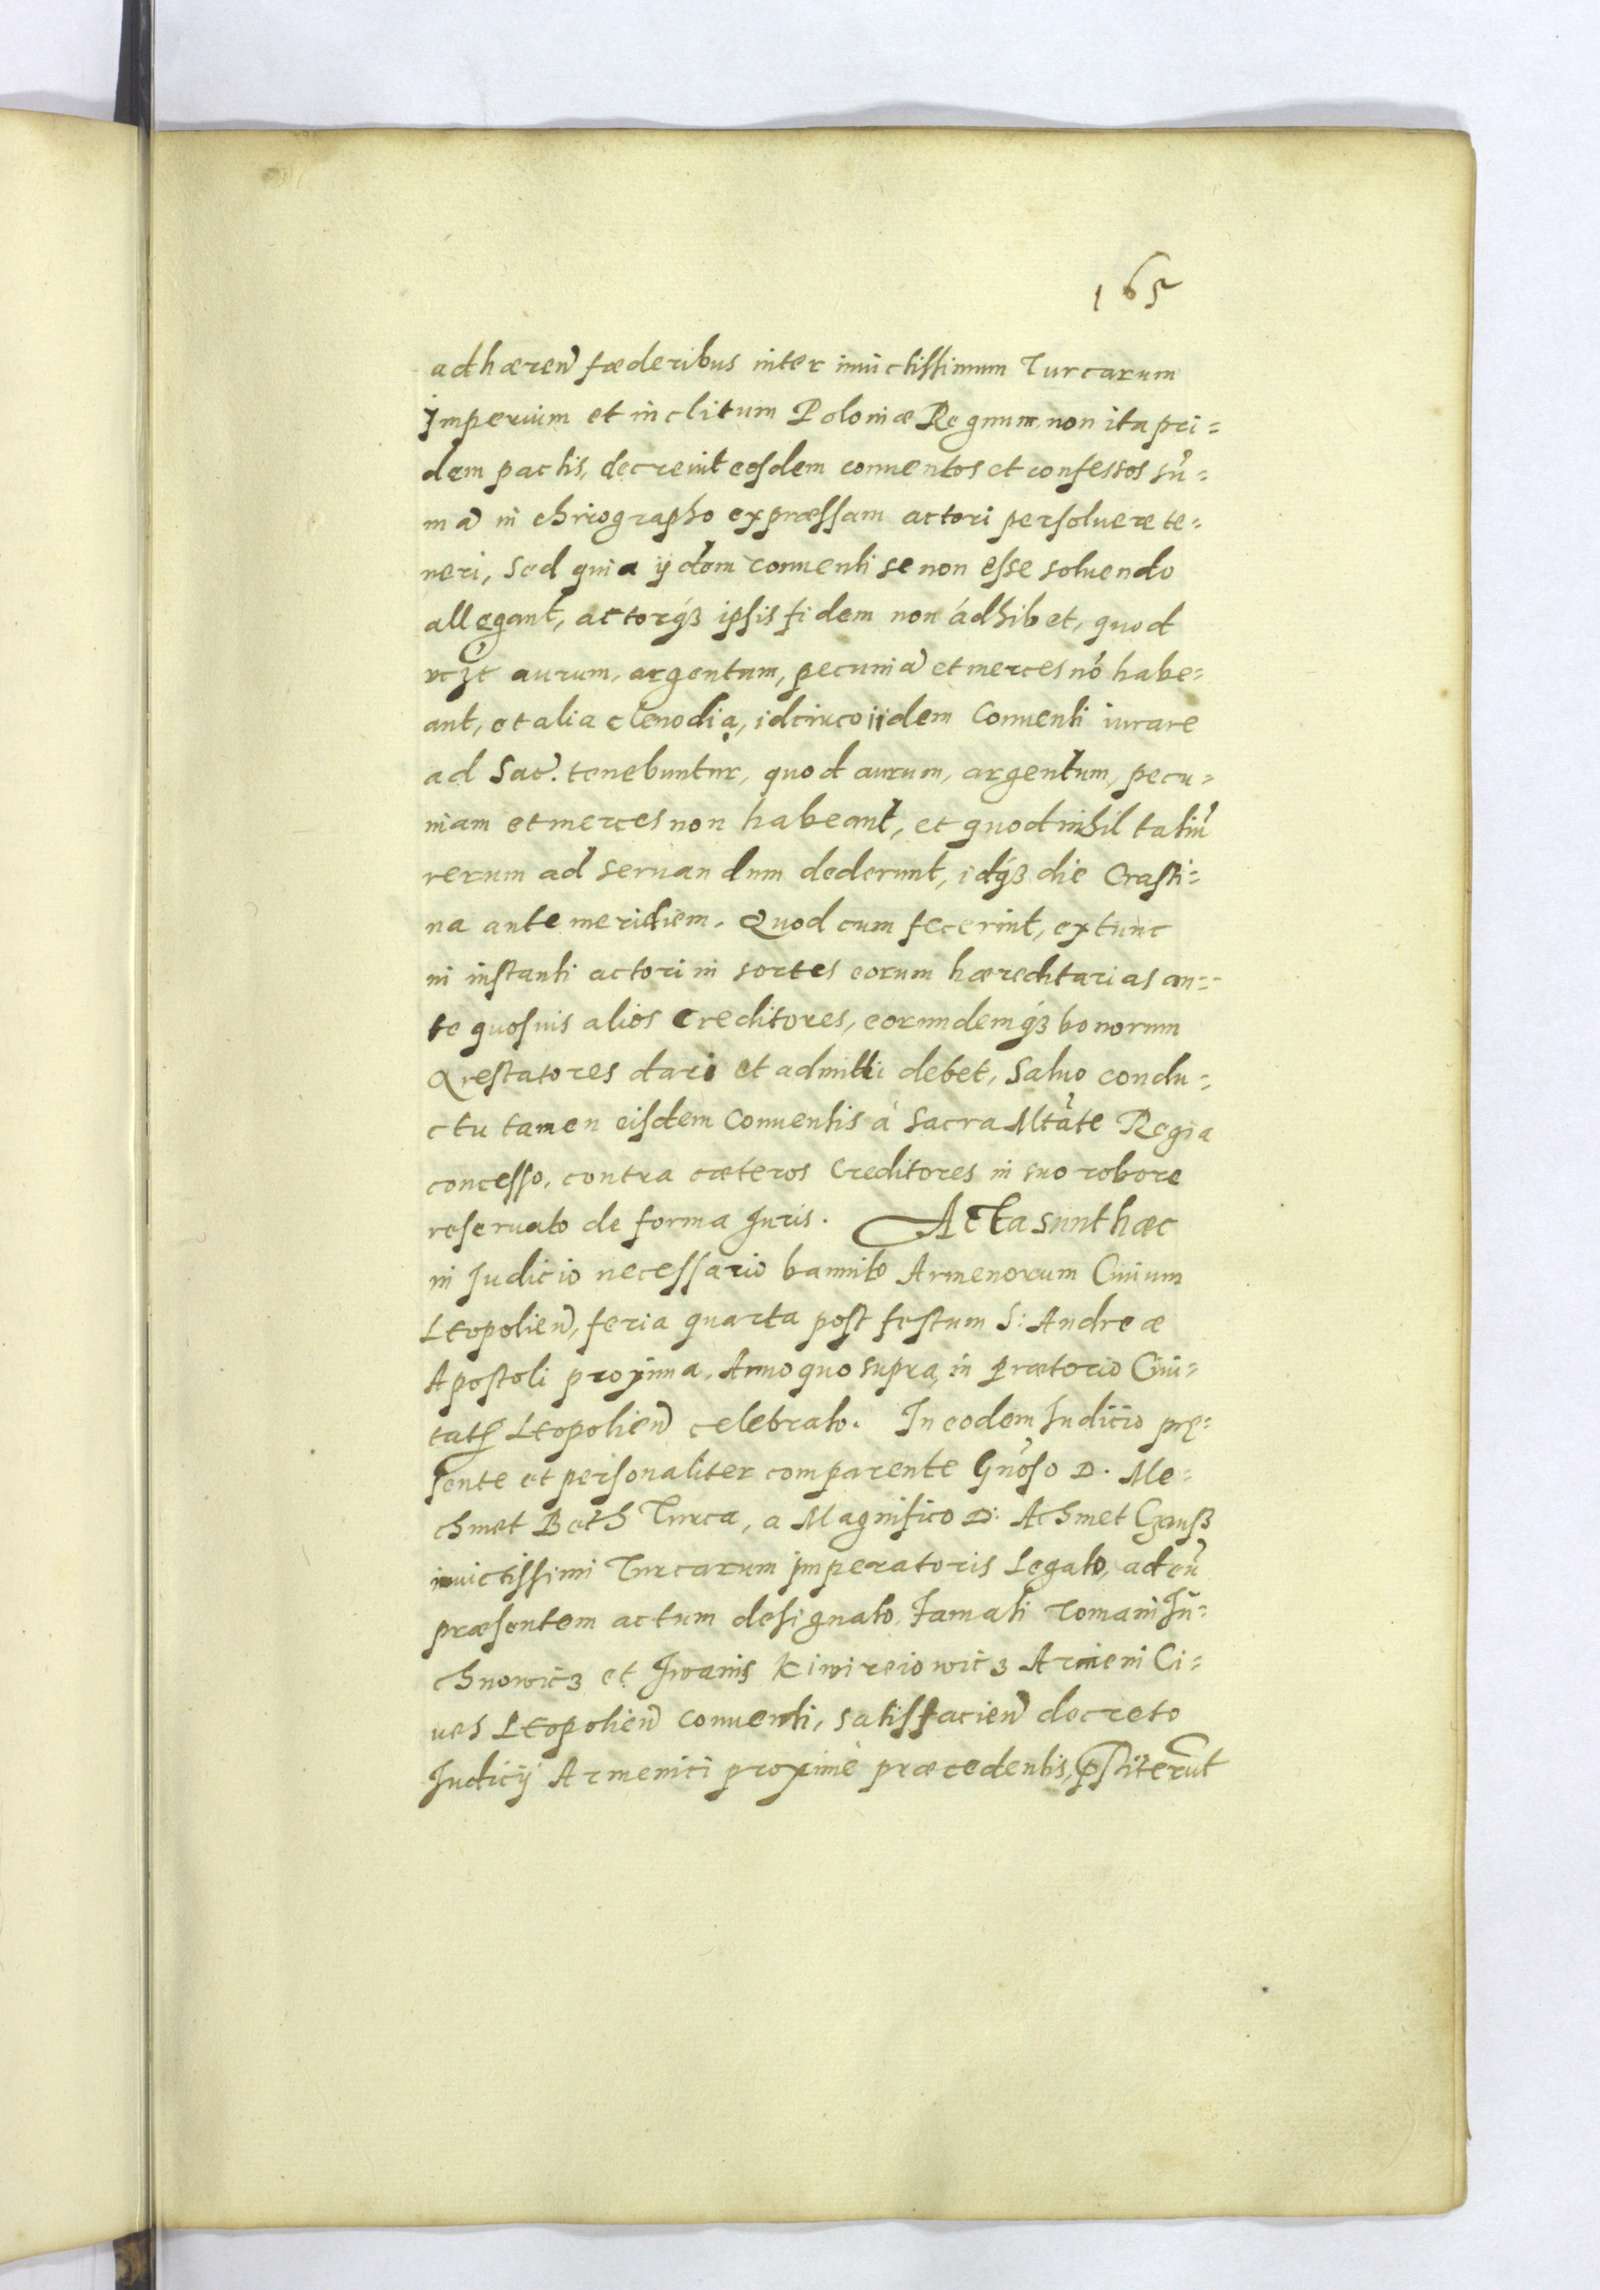 165
adhæren̄ fœderibus inter inuictissimum Turcarum
Imperium et inclitum Poloniæ Regnum, non ita pri=
dem pactis, decreuit eosdem conuentos et confessos sū=
mā in chirographo expræssam actori persoluere te=
neri, Sed quia ijdem conuenti se non esse soluendo
allegant, actorq́ꝫ ipsis fidem non adhibet, quod
vczt aurum, argentum, pecuniā et merces nō habe=
ant, et alia clenodia, idcirco iidem Conuenti iurare
ad Sac̄. tenebuntur, quod aurum, argentum, pecu=
niam et merces non habeant, et quod nihil taliū
rerum ad seruandum dederunt, idq́ꝫ die Crasti=
na ante meridiem. Quod cum fecerint, extunc
in instanti actori in sortes eorum hæreditarias an=
te quosuis alios Creditores, eorundemq́ꝫ bonorum
Arestatores dari et admitti debet, Saluo condu=
ctu tamen eisdem Conuentis à Sacra Mtāte Regia
concesso, contra cæteros Creditores in suo robore
reseruato de forma Iuris. Acta sunt hæc
in Iudicio necessario bannito Armenorum Ciuium
Leopolien̄, feria quarta post festum S: Andreæ
Apostoli proxima, Anno quo supra, in prætorio Ciui=
tatis Leopolien̄ celebrato. In eodem Iudicio prę=
sente et personaliter comparente Gn̄oso D. Me=
chmet Beth Turca, a Magnifico D: Achmet Czausz
inuictissimi Turcarum imperatoris Legato, ad eū
præsentem actum designato, famati Tomani Iu=
chnowicz et Iwanis Kiwireiowicz Armeni Ci=
ues Leopolien̄ conuenti, satisfacien̄ decreto
Iudicij Armenici proxime præcedentis, p̄stiterūt